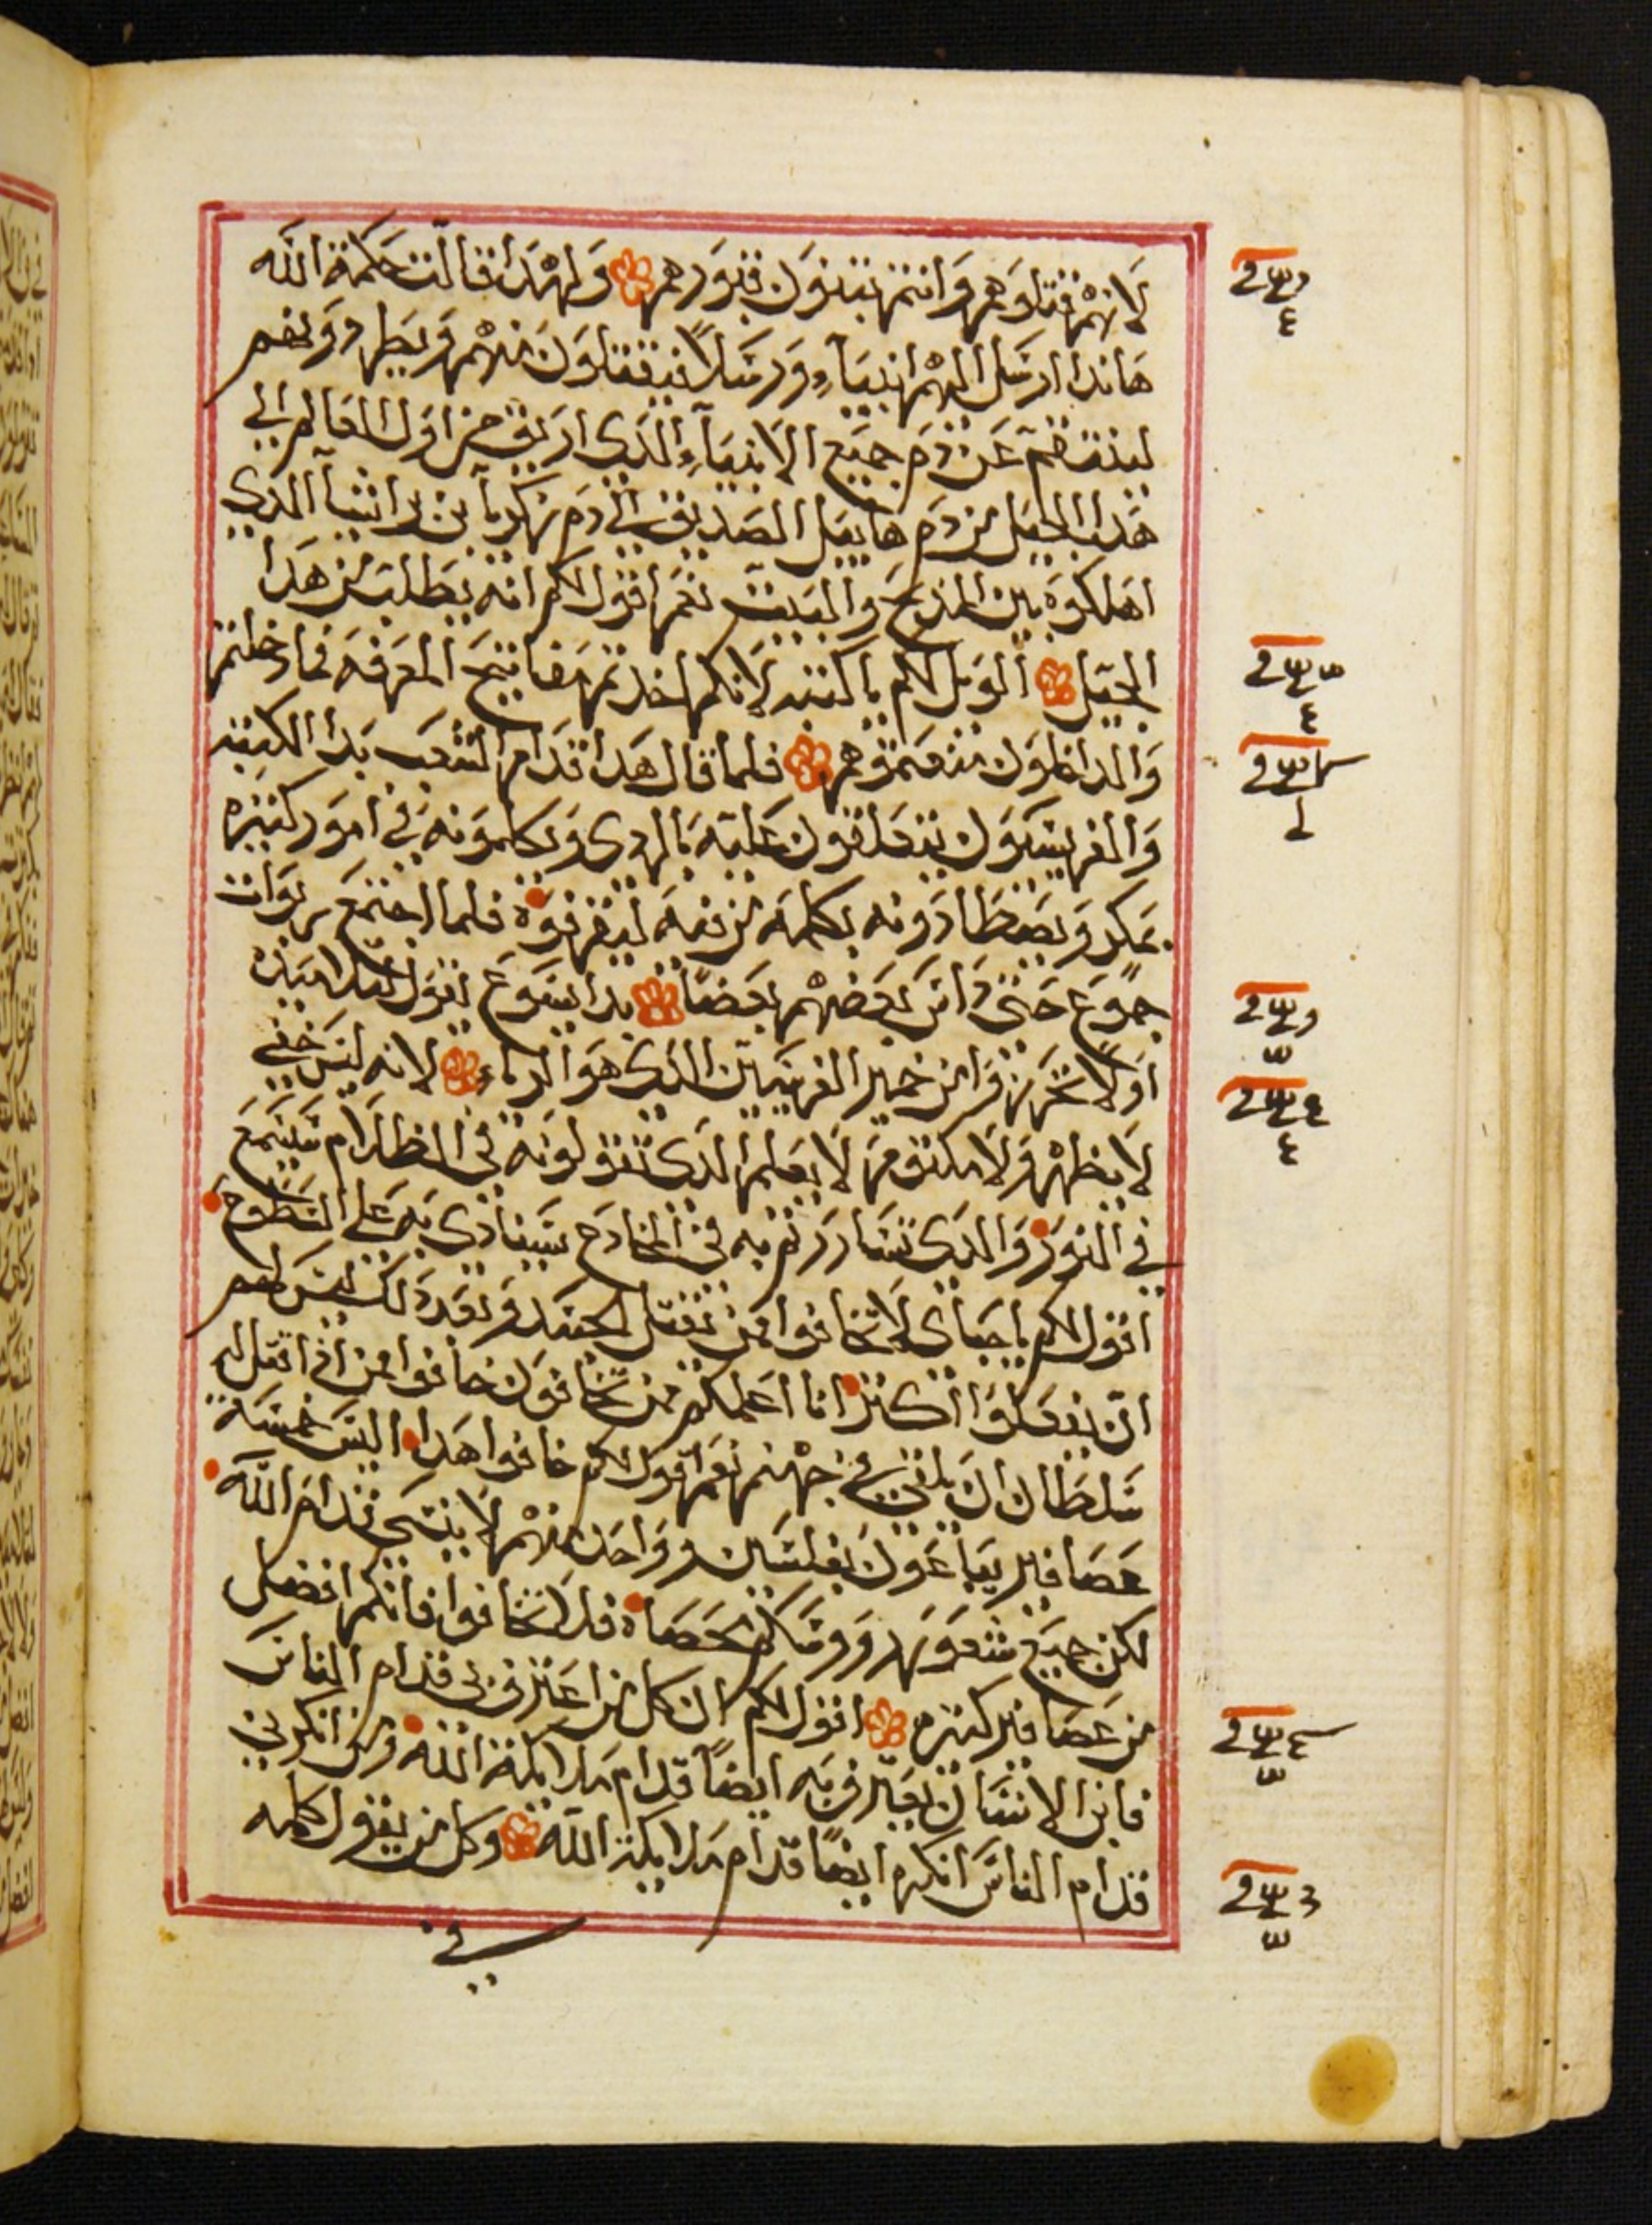 لانهم قتلوهم وانتم تبنون قبورهم ولهدا قالت حكمة الله
هاندا ارسل اليهم انبياء ورسلا فيقتلون منهم ويطردونهم
لينتقم عن دم جميع الانبياء الدي اريق من اول العالم الي
هدا الجيل من دم هابيل الصديق الي دم زكريا بن براشيا الدي
اهلكوه بين المدبح والبيت نعم اقول لكم انه يطلب من هدا
الجيل الويل لكم يا كتبه لانكم اخدتم مفاتيح المعرفه فما دخلتم
والداخلون منعتموهم فلما قال هدا قدام الشعب بدا الكتبه
والفريسيون يتعلقون عليه بالردي ويكلمونه في امور كثيره
بمكر ويصطادونه بكلمه من فمه ليقرفوه فلما اجتمع ربوات
جموع حتي داس بعضهم بعضا بدا يسوع يقول لتلاميذه
اولا تحرزوا من خمير الفريسيين الدي هو الرياء لانه ليس خفي
لا يظهر ولا مكتوم لا يعلم الدي تقولونه في الظلام سيسمع
في النور والدي تساررتم به في المخادع سينادي به علي السطوح
اقول لكم يا احباي لا تخافوا ممن يقتل الجسد وبعد دلك ليس لهم
ان يفعلوا اكتر انا اعلمكم ممن تخافون خافوا ممن ادا قتل له
سلطان ان يلقي في جهنم نعم اقول لكم خافوا هدا اليس خمسة
عصافير يباعون بفلسين وواحد منهم لا ينسي قدام الله
لكن جميع شعور روسكم محصاة فلا تخافوا فانكم افضل
من عصافير كثيره اقول لكم ان كل من اعترف بي قدام الناس
فابن الانسان يعترف به ايضا قدام ملايكة الله ومن انكرني
قدام الناس انكره ايضا قدام ملايكة الله وكل من يقول كلمه
في